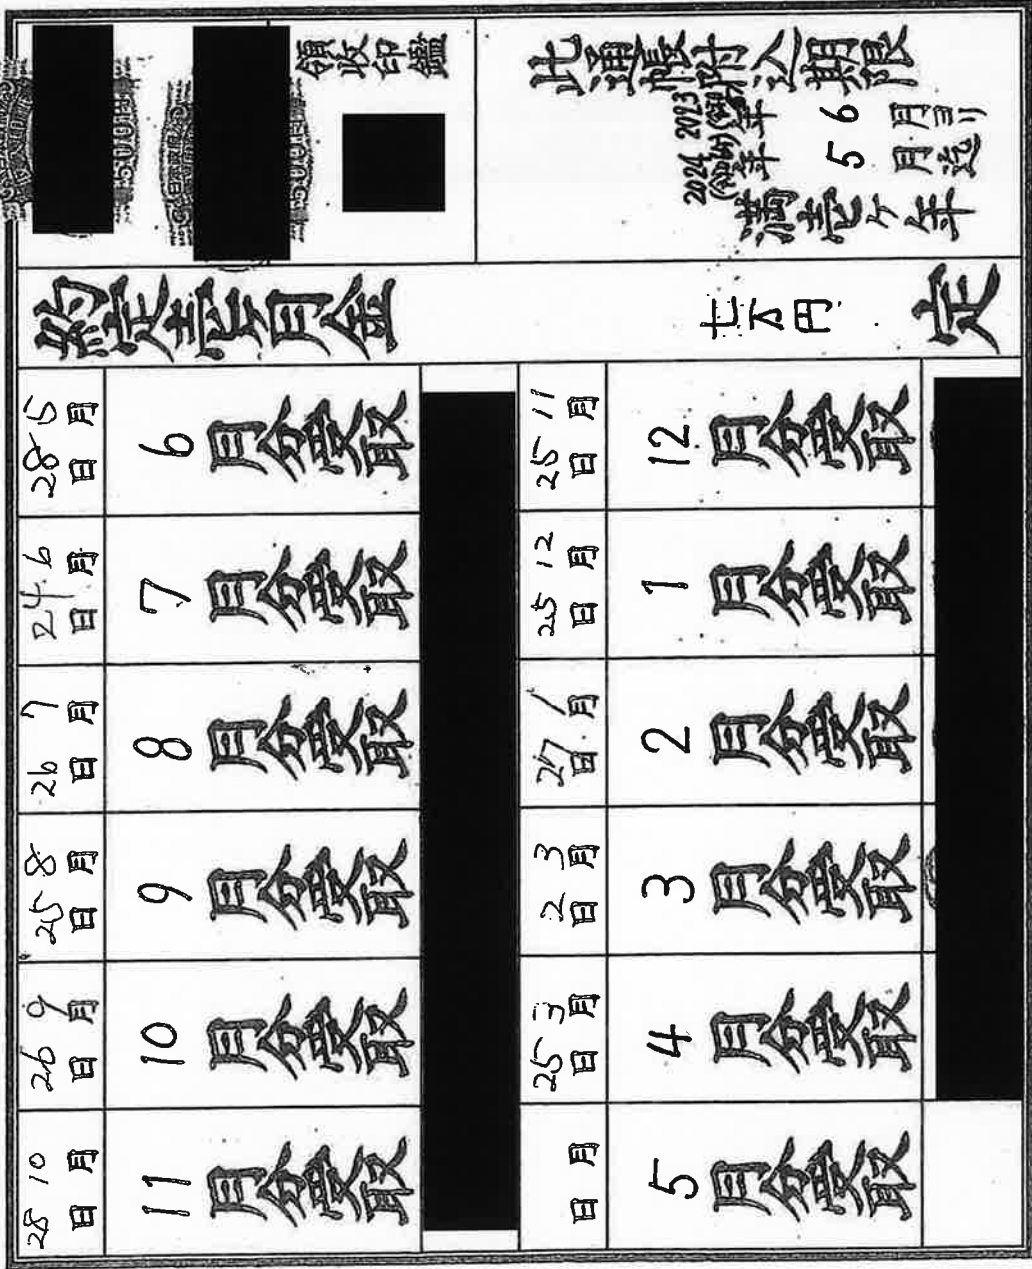 此通帳附込期限
2023(令和5)年6月ヨリ
2024(令和6)年5月迄
満壱ケ年
領収印鑑
定
約定壱ヶ月金 七万円
5月28日 6月分受取
6月24日 7月分受取
7月26日 8月分受取
8月25日 9月分受取
9月26日 10月分受取
10月28日 11月分受取
11月25日 12月分受取
12月25日 1月分受取
1月27日 2月分受取
3月2日 3月分受取
3月25日 4月分受取
月 日 5月分受取